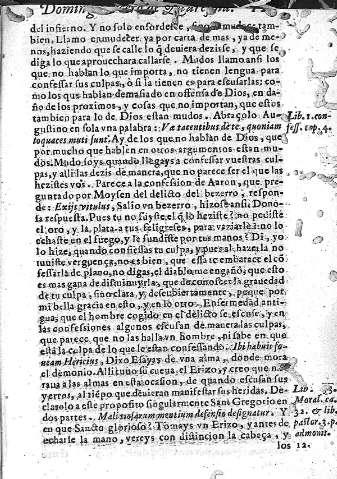 Doming
del infierno. Y no solo ensordece, sino amudece tam-
bien. Llamo enmudecer ya por carta de mas, ya de me-
nos, haziendo que se calle lo q̃ deuiera dezirse, y que se
diga lo que aprouechara callarse. Mudos llamo ansi los
que no hablan lo que importa, no tienen lengua para
confessar sus culpas, ò si la tienen es para escusarlas: co-
mo los que hablan demasiado en offensa de Dios, en da-
ño de los proximos, y cosas que no importan, que estos
tambien para lo de Dios estan mudos. Abraçolo Au-
gustino en sola vna palabra: Væ tacentibus de te, quoniam
loquaces muti sunt. Ay de los que no hablan de Dios, que
por mucho que hablen en otros argumentos estan mu-
dos. Mudo soys quando llegays a confessar vuestras cul-
pas, y alli las dezis de manera, que no parece ser el que las
hezistes vos. Parece a la confession de Aaron, que pre-
guntado por Moysen del delicto del bezerro, respon-
de: Exijt vitulus, Salio vn bezerro, hizose ansi. Dono-
sa respuesta. Pues tu no fuyste el q̃ lo heziste? no pediste
el oro, y la plata a tus feligreses, para vaziarle? no lo
echaste en el fuego, y le fundiste por tus manos? Di, yo
lo hize, quando confiessas tu culpa, y pues al hazerla no
tuuiste verguença, no es bien, que essa te embarace el cõ-
fessarla de plano, no digas, el diablo me engañò; que esto
es mas gana de disminuyrla, que de conoscer la grauedad
de tu culpa, sino clara, y descubiertamente, peque por
mi bella gracia en esto, y en lo otro. Enfermedad anti-
gua; que el hombre cogido en el delicto se escuse, y en
las confessiones algunos escusan de manera las culpas,
que parece que no las halla vn hombre, ni sabe en que
està la culpa de lo que estan confessando. Ibi habuit fo-
neam Hericius, Dixo Esayas de vna alma, donde mora
el demonio. Alli tuuo su cueua el Erizo, y creo que mi-
raua a las almas en esta ocasion, de quando escusan sus
yerros, al tiẽpo que deuieran manifestar sus heridas. De-
claro lo a este proposito singularmente Sant Gregorio en
dos partes. Malitiosarum mentium defensio designatur. Y
en que Sancto glorioso? Tomays vn Erizo, y antes de
echarle la mano, vereys con distincion la cabeça, y
los
Lib. 1. con-
fess. cap. 4.
Lib. 3.
Moral. ca.
32. & lib.
pastor. 3. p.
admonit.
12.